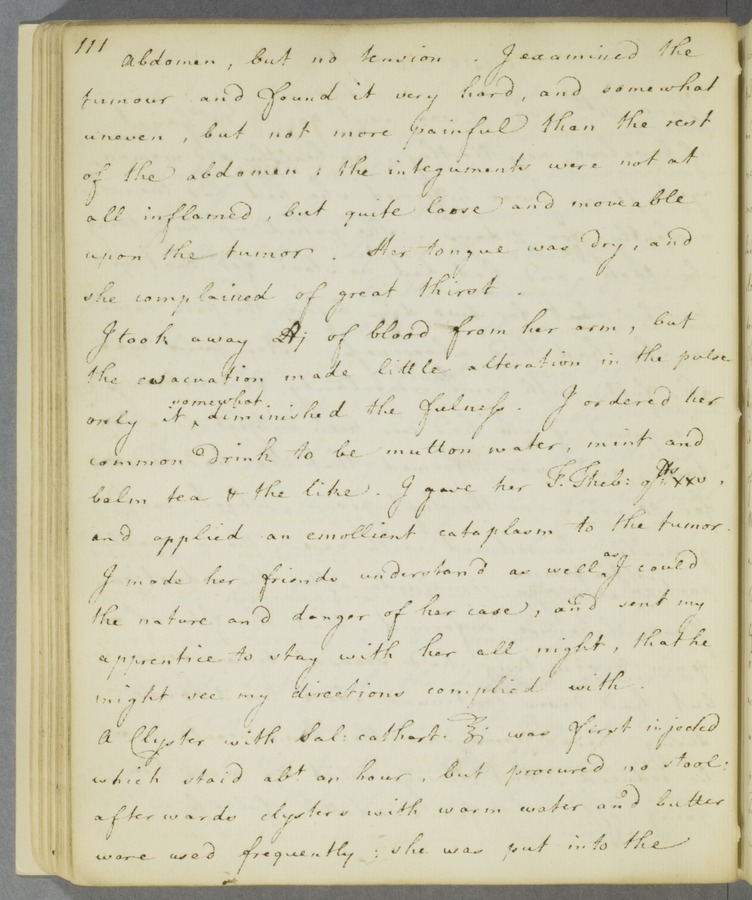 111
abdomen, but no tension. I examined the
tumour and found it very hard, and somewhat
uneven, but not more painful than the rest
of the abdomen: the integuments were not at
all inflamed, but quite loose and moveable
upon the tumor. Her tongue was dry, and
she complained of great thirst.
I took away ℔j of blood from her arm, but
the evacuation made little alteration in the pulse
only it somewhat diminished the fulness. I ordered her
common drink to be mutton water, mint and
balm tea & the like. I gave her T. Theb: gtts xxv,
and applied an emollient cataplasm to the tumor.
I made her friends understand as well as I could
the nature and danger of her case, and sent my
apprentice to stay with her all night, that he
might see my directions complied with.
A Clyster with Sal: cathart: ℥j was first injected
which staid abt an hour, but procured no stool:
afterwards clysters with warm water and butter
were used frequently: she was put into the